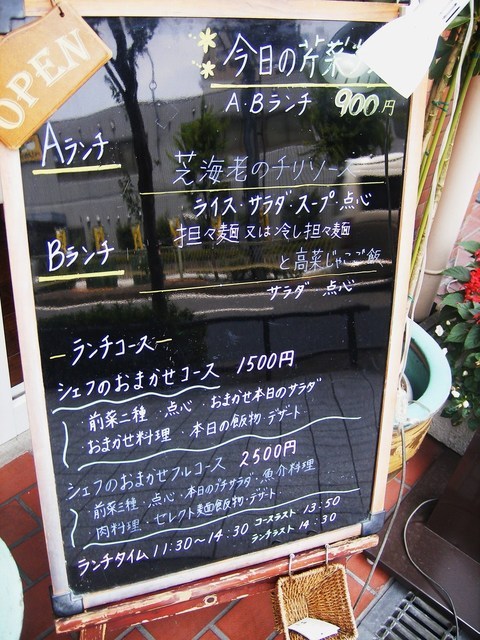 OPEN
今日の芹菜
A・Bランチ 900円
Aランチ
芝海老のチリソース
ライス・サラダ・スープ・点心
Bランチ
担々麺又は冷し担々麺
と高菜じゃこご飯
サラダ 点心
ランチコース
シェフのおまかせコース 1500円
・前菜二種・点心・おまかせ本日のサラダ
・おまかせ料理・本日の飯物・デザート
シェフのおまかせフルコース 2500円
前菜三種・点心・本日のプチサラダ・魚介料理
肉料理・セレクト麺飯物・デザート
ランチタイム 11:30～14:30 コースラスト 13:50
ランチラスト 14:30